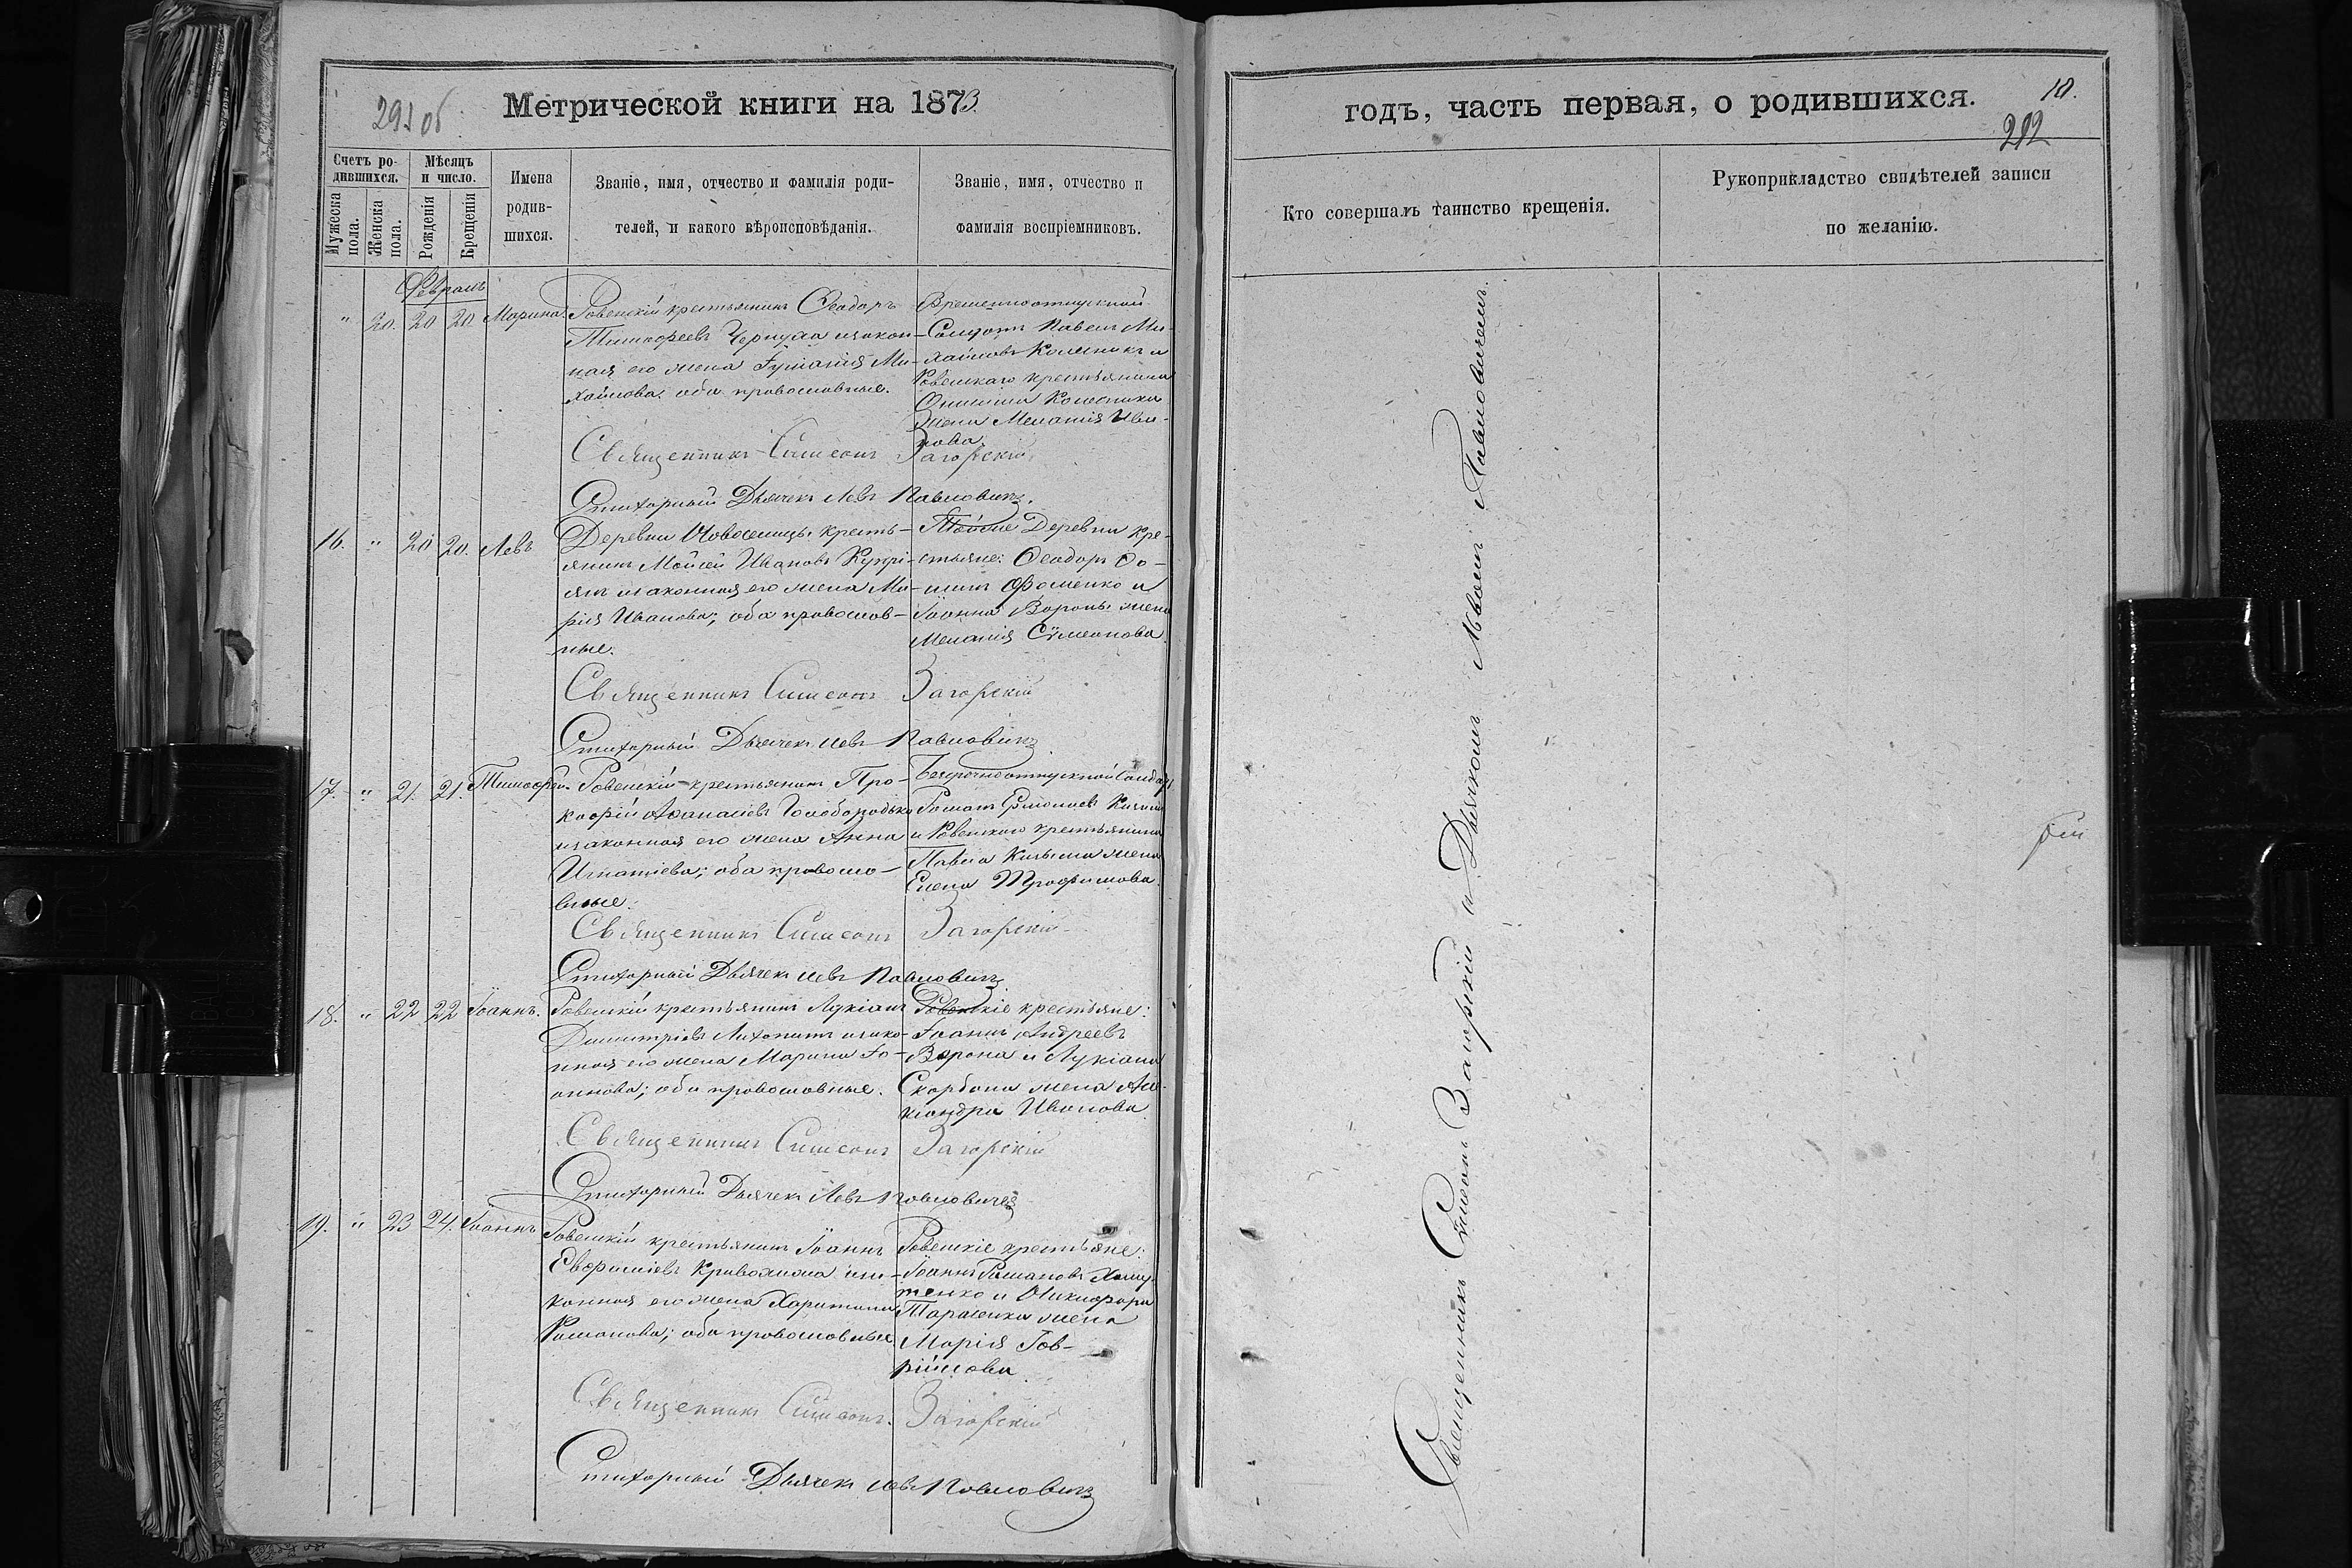 291 об
Метрической книги на 1873
Счетъ родившихся.
Мѣсяцъ и число.
Мужеска пола.
Женска пола.
Рожденія
Крещенія
Имена родившихся.
Званіе, имя, отчество и фамилія родителей, и какого вѣроисповѣданія.
Званіе, имя, отчество и фамилія воспріемниковъ.
Февраль
" 20. 20 20 Марина.
Ровенскій крестьянинъ Ѳеодоръ
Тимофеевъ законная его жена Михайлова: оба православные.
Временноотпускной
Солдатъ Павелъ Михайловъ Колесникъ и
Ровенскаго крестьянина
Онисима Колесника
жена Меланія Иванова.
Священникъ Симеонъ Загорскій
Стихарный Дьячекъ Левъ Павловичъ.
16. " 20 20. Левъ
Деревни Новоселицы крестьянинъ Мойсей Ивановъ
и законная его жена Марія Иванова; оба православные.
Тойже Деревни крестьяне: Ѳеодоръ
Фоменко и
Іоанна Вороны жена
Меланія Сѵмеонова.
Священникъ Симеонъ Загорскій
Стихарный Дьячекъ Левъ Павловичъ
17. " 21. 21. Тимофей.
Ровенскій крестьянинъ Прокофій Аѳанасіевъ Голобородько
и законная его жена Анна
Игнатіева; оба православные.
Безсрочноотпускной Солдатъ
Романъ
и Ровенскаго крестьянина
Павла жена
Елена Трофимова.
Священникъ Симеонъ Загорскій
Стихарный Дьячекъ Левъ Павловичъ
18. " 22 22 Іоаннъ.
Ровенскій крестьянинъ Лукіанъ
Димитріевъ и законная его жена Марина Іоаннова; оба православные.
Ровенскіе крестьяне:
Іоаннъ Андреевъ
Ворона и Лукіана
Скорбаты жена Александра Иванова.
Священникъ Симеонъ Загорскій
Стихарный Дьячекъ Левъ Павловичъ
19. " 23 24. Іоаннъ
Ровенскій крестьянинъ Іоаннъ
Евфиміевъ Кривохижа и законная его жена Харитина
Романова; оба православные
Ровенскіе крестьяне:
Іоаннъ Романовъ Хомутенко и Никифора
Тарасенка жена
Марія Гавріилова.
Священникъ Симеонъ Загорскій
Стихарный Дьячекъ Левъ Павловичъ
годъ, часть первая, о родившихся.
10.
292
Кто совершалъ таинство крещенія.
Рукоприкладство свидѣтелей записи
по желанію.
Священникъ Сѵмеонъ Загорскій съ Дьячкомъ Львомъ Павловичемъ.